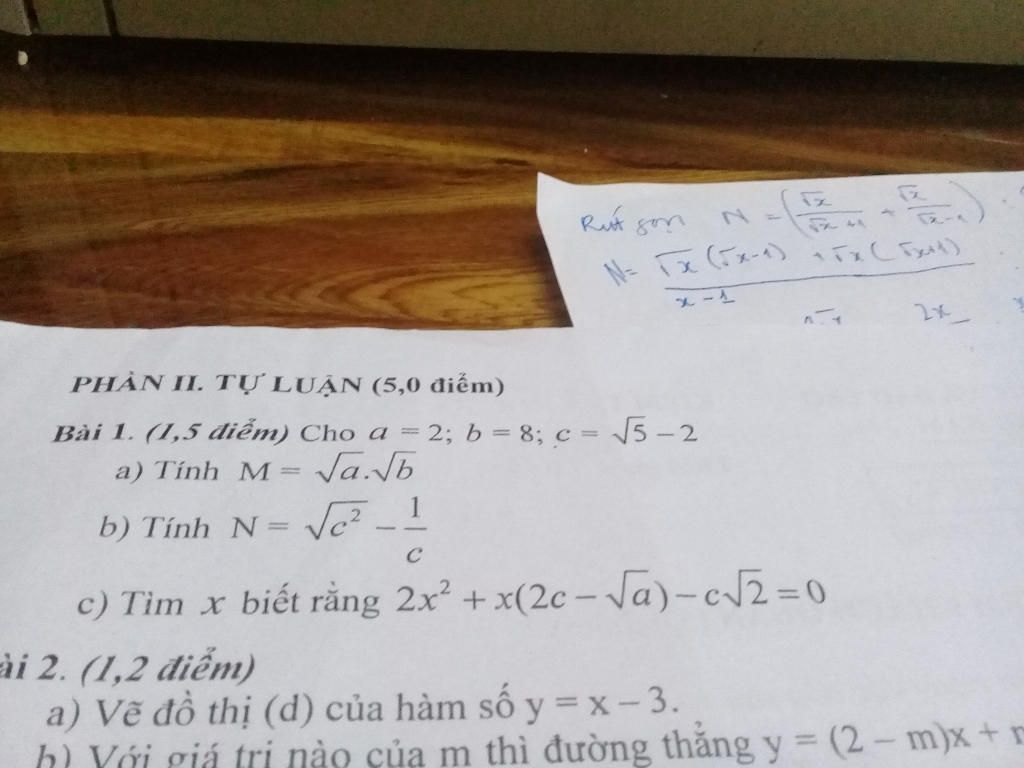 Rút gọn N = (√x/(√x+1) + √x/(√x-1)) :
N = (√x(√x-1) + √x(√x+1))/(x-1)
2x
PHẦN II. TỰ LUẬN (5,0 điểm)
Bài 1. (1,5 điểm) Cho a = 2; b = 8; c = √5 − 2
a) Tính M = √a.√b
b) Tính N = √c² − 1/c
c) Tìm x biết rằng 2x² + x(2c − √a) − c√2 = 0
ài 2. (1,2 điểm)
a) Vẽ đồ thị (d) của hàm số y = x − 3.
b) Với giá trị nào của m thì đường thẳng y = (2 − m)x +